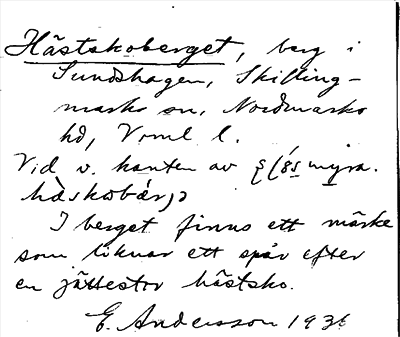 Hästskoberget, berg i
Sundshagen, Skilling-
marks sn, Nordmarks
hd, Vrml l.
Vid v. kanten av myra.
I berget finns ett märke
som liknar ett spår efter
en jättestor hästsko.
E. Andersson 1936